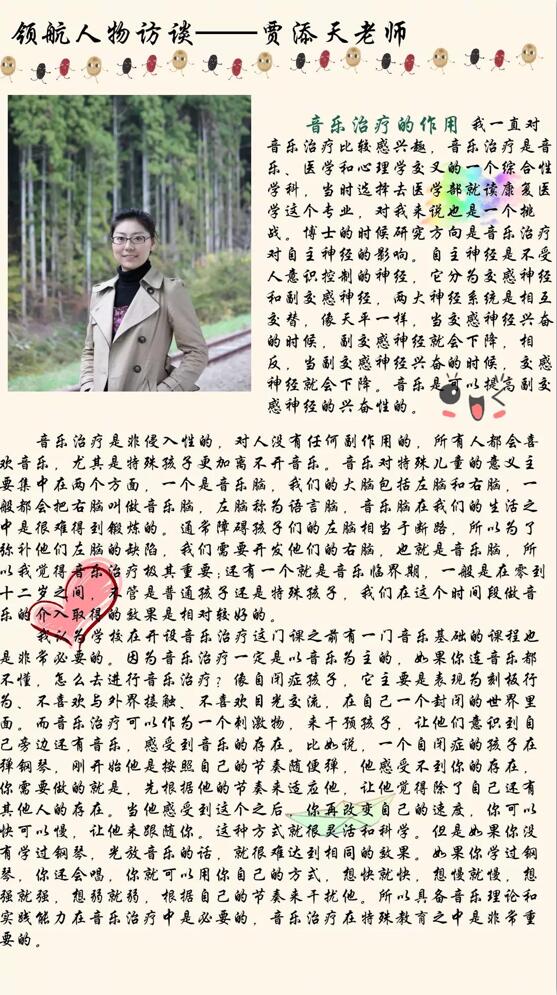 领航人物访谈——贾添天老师
音乐治疗的作用 我一直对
音乐治疗比较感兴趣，音乐治疗是音
乐、医学和心理学交叉的一个综合性
学科，当时选择去医学部就读康复医
学这个专业，对我来说也是一个挑
战。博士的时候研究方向是音乐治疗
对自主神经的影响。自主神经是不受
人意识控制的神经，它分为交感神经
和副交感神经，两大神经系统是相互
交替，像天平一样，当交感神经兴奋
的时候，副交感神经就会下降，相
反，当副交感神经兴奋的时候，交感
神经就会下降。音乐是可以提高副交
感神经的兴奋性的。
音乐治疗是非侵入性的，对人没有任何副作用的，所有人都会喜
欢音乐，尤其是特殊孩子更加离不开音乐。音乐对特殊儿童的意义主
要集中在两个方面，一个是音乐脑，我们的大脑包括左脑和右脑，一
般都会把右脑叫做音乐脑，左脑称为语言脑，音乐脑在我们的生活之
中是很难得到锻炼的。通常障碍孩子们的左脑相当于断路，所以为了
弥补他们左脑的缺陷，我们需要开发他们的右脑，也就是音乐脑，所
以我觉得音乐治疗极其重要;还有一个就是音乐临界期，一般是在零到
十二岁之间，不管是普通孩子还是特殊孩子，我们在这个时间段做音
乐的介入取得的效果是相对较好的。
我认为学校在开设音乐治疗这门课之前有一门音乐基础的课程也
是非常必要的。因为音乐治疗一定是以音乐为主的，如果你连音乐都
不懂，怎么去进行音乐治疗？像自闭症孩子，它主要是表现为刻板行
为、不喜欢与外界接触、不喜欢目光交流，在自己一个封闭的世界里
面。而音乐治疗可以作为一个刺激物，来干预孩子，让他们意识到自
己旁边还有音乐，感受到音乐的存在。比如说，一个自闭症的孩子在
弹钢琴，刚开始他是按照自己的节奏随便弹，他感受不到你的存在，
你需要做的就是，先根据他的节奏来适应他，让他觉得除了自己还有
其他人的存在。当他感受到这个之后，你再改变自己的速度，你可以
快可以慢，让他来跟随你。这种方式就很灵活和科学。但是如果你没
有学过钢琴，光放音乐的话，就很难达到相同的效果。如果你学过钢
琴，你还会唱，你就可以用你自己的方式，想快就快，想慢就慢，想
强就强，想弱就弱，根据自己的节奏来干扰他。所以具备音乐理论和
实践能力在音乐治疗中是必要的，音乐治疗在特殊教育之中是非常重
要的。